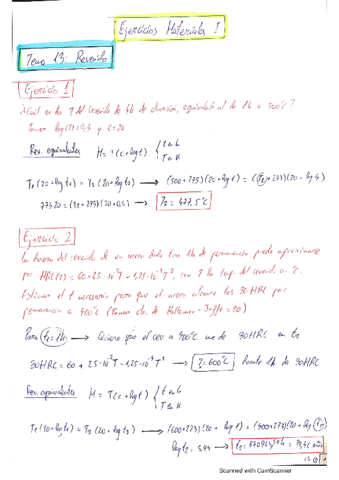 Ejercicios Materiales I
Tema 13: Revenido
Ejercicio 1
¿Cuál es la T del revenido de 4h de duración, equivalente al de 1h a 500°C?
Tomar log(4)=0,6 y C=20
Rev. equivalentes M = T(c+logt) { t en h
T en K
T₁(20+logt₁) = T₂(20+logt₂) → (500+273)(20+log1) = (T₂+273)(20+log4)
773·20 = (T₂+273)(20+0,6) → T₂ = 477,5°C
Ejercicio 2
La dureza del revenido de un acero dado tras 1h de permanencia puede aproximarse
por HRC(T) = 60 + 2,5·10⁻²T - 1,25·10⁻⁴T², con T la temp. del revenido en °C.
Estimar el t necesario para que el acero alcance los 30 HRC por
permanencia a 400°C (Tomar cte. de Hollomon-Jaffe = 20)
Para t₁=1h → Quiero que el rev. a 400°C me de 30HRC en t₂
30HRC = 60 + 2,5·10⁻²T - 1,25·10⁻⁴T² → T=600°C durante 1h da 30HRC
Rev. equivalentes M = T(c+logt) { t en h
T en K
T₁(20+logt₁) = T₂(20+logt₂) → (600+273)(20+log1) = (400+273)(20+logt₂)
logt₂ = 5,94 →
Scanned with CamScanner